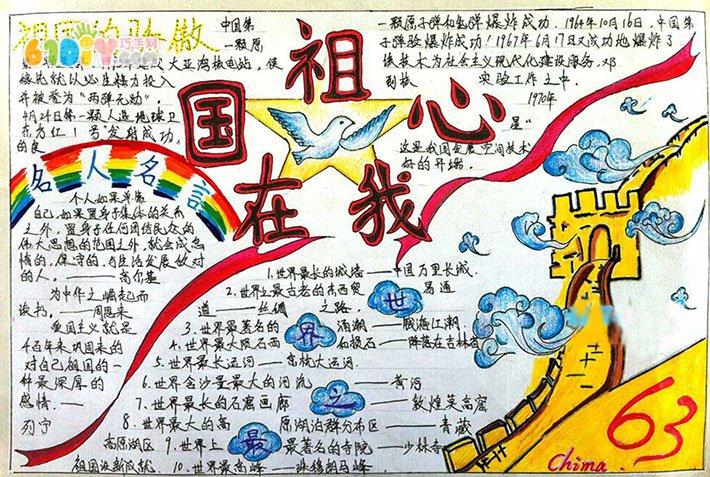 祖国的骄傲
610iy巧手网
中国第
一颗原
大亚湾核电站,使
并被誉为“两弹元勋”。
4月24日第一颗人造地球卫
东方红1号”发射成功,
的良
一颗原子弹和氢弹爆炸成功。1964年10月16日,中国
弹验爆炸成功!1967年6月17日又成功地爆炸了
技术为社会主义现代化建设服务,邓
实验工作之中。
1970年
星“
这是我国发展空间技术
好的开端。
祖
国 心
在 我
名人名言
个人如果单靠
自己,如果置身于集体的关系
之外,置身于任何团结民众的
伟大思想的范围之外,就会成怠
惰的,保守的,与生活发展敌对
的人。——高尔基
为中华之崛起而
读书。——周恩来
爱国主义就是
千百年来巩固来的
对自己祖国的一
种最深厚的
感情。——
列宁
世界之最
1.世界最长的城墙——中国万里长城.
2.世界之最古老的东西贸易通
道——丝绸之路.
3.世界最著名的涌潮——钱海江潮.
4.世界最大陨石雨 和陨石——降落在吉林省
5.世界最长运河——京杭大运河.
6.世界含沙量最大的河流——黄河
7.世界最长的石窟画廊——敦煌莫高窟
8.世界最大的高原湖泊群分布区——青藏
高原湖区 9.世界上最著名的寺院——少林寺
10.世界最高峰——珠穆朗马峰.
63
China.